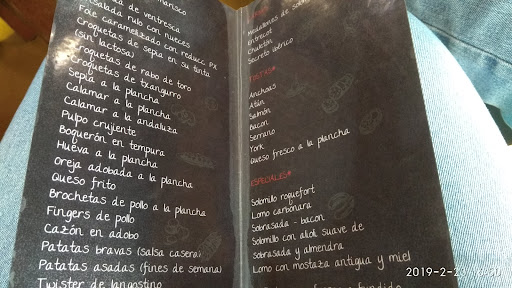 marisco
de ventresca
ensalada rulo con nueces
Foie caramelizado con reducc. PX
Croquetas de sepia en su tinta
(sin lactosa)
Croquetas de rabo de toro
Croquetas de txangurro
Sepia a la plancha
Calamar a la plancha
Calamar a la andaluza
Pulpo crujiente
Boquerón en tempura
Hueva a la plancha
Oreja adobada a la plancha
Queso frito
Brochetas de pollo a la plancha
Fingers de pollo
Cazón en adobo
Patatas bravas (salsa casera)
Patatas asadas (fines de semana)
Twister de langostino
Medallones de
Entrecot
Chuletón
Secreto ibérico
TOSTAS*
Anchoas
Atún
Salmón
Bacon
Serrano
York
Queso fresco a la plancha
ESPECIALES*
Solomillo roquefort
Lomo carbonara
Sobrasada - bacon
Solomillo con alioli suave de
Sobrasada y almendra
Lomo con mostaza antigua y miel
fundido
2019-2-23